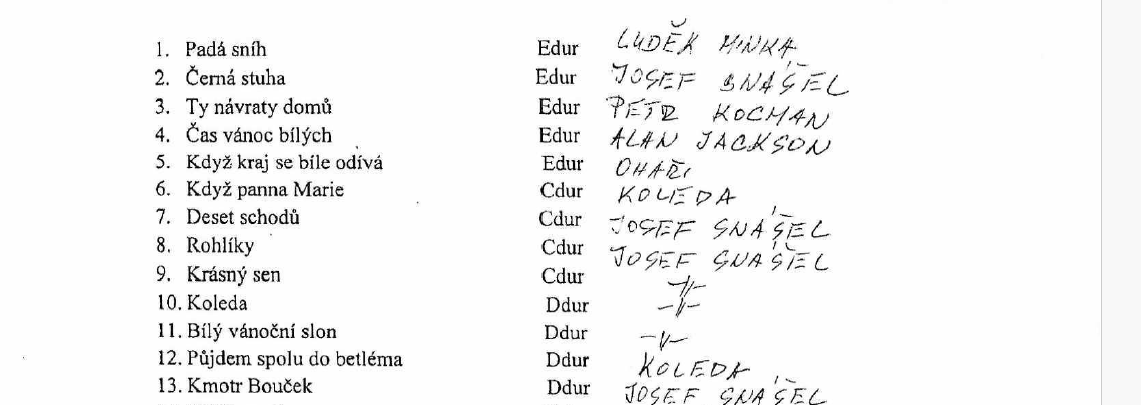 1. Padá sníh Edur LUDĚK MINKA
2. Černá stuha Edur JOSEF SNÁŠEL
3. Ty návraty domů Edur PETR KOCMAN
4. Čas vánoc bílých Edur ALAN JACKSON
5. Když kraj se bíle odívá Edur OHAŘI
6. Když panna Marie Cdur KOLEDA
7. Deset schodů Cdur JOSEF SNÁŠEL
8. Rohlíky Cdur JOSEF SNÁŠEL
9. Krásný sen Cdur -//-
10. Koleda Ddur -//-
11. Bílý vánoční slon Ddur -//-
12. Půjdem spolu do betléma Ddur KOLEDA
13. Kmotr Bouček Ddur JOSEF SNÁŠEL